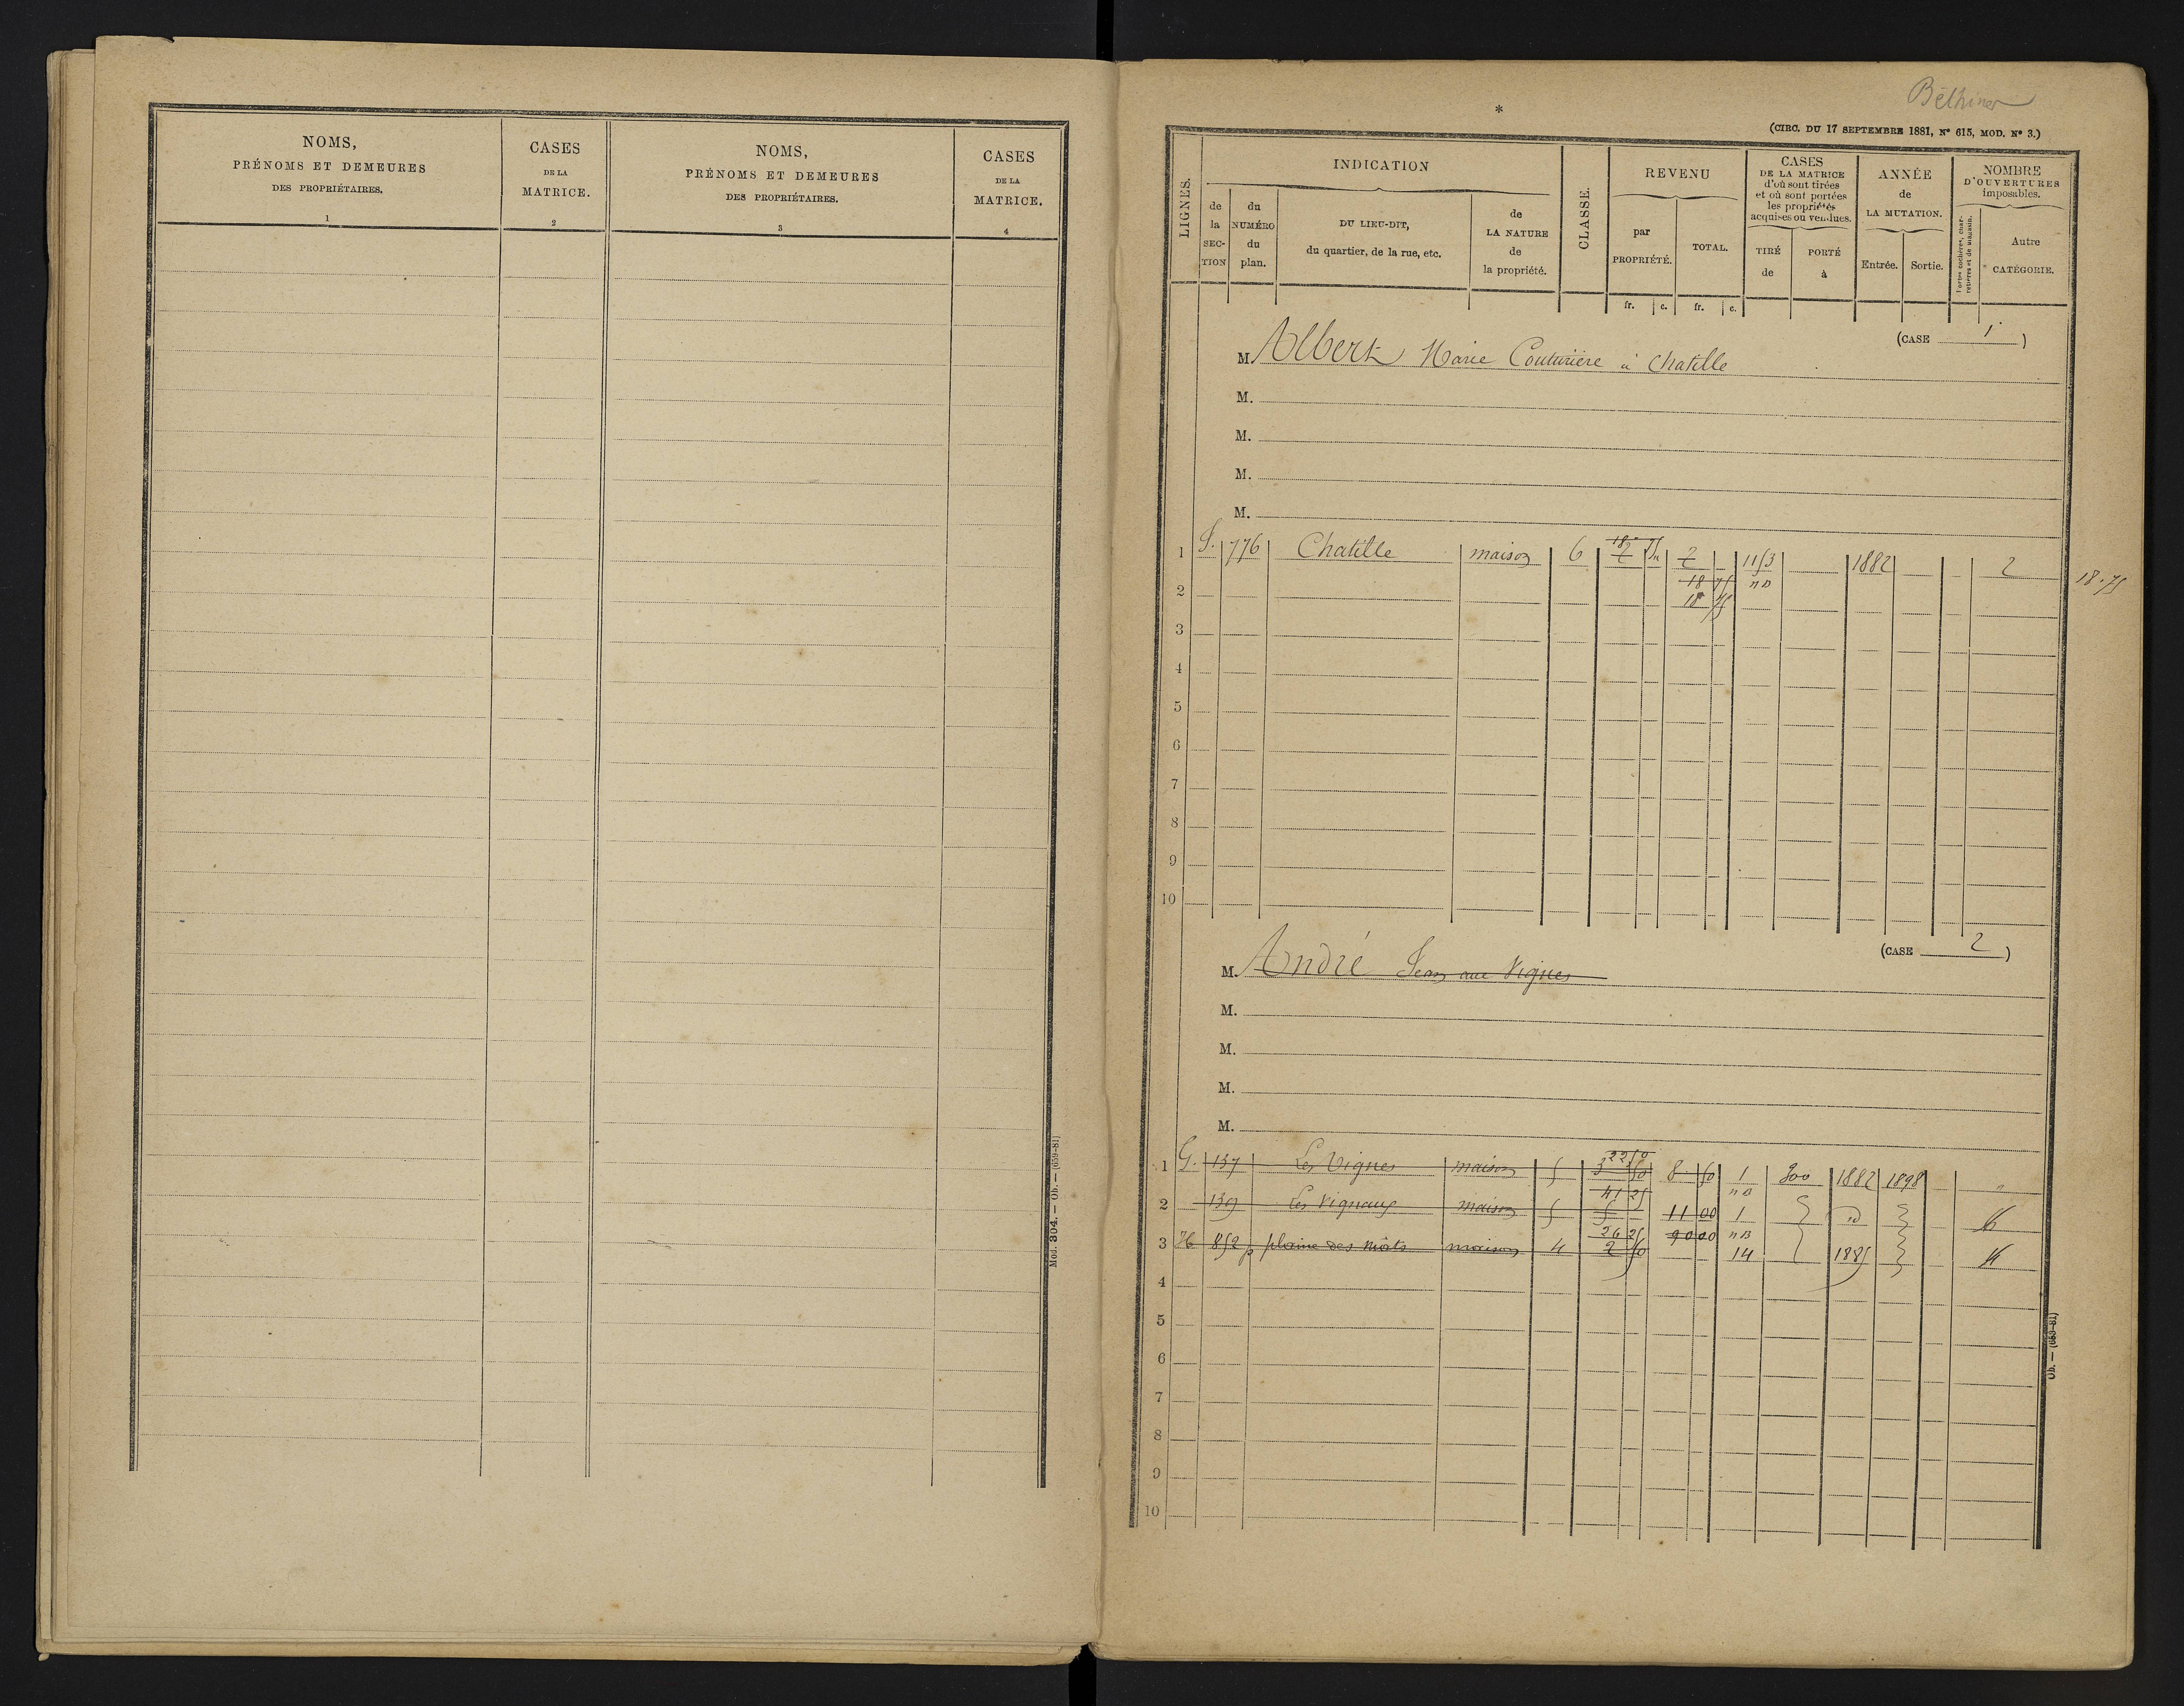 NOMS,
PRÉNOMS ET DEMEURES
DES PROPRIÉTAIRES.
1
CASES
DE LA
MATRICE.
2
NOMS,
PRÉNOMS ET DEMEURES
DES PROPRIÉTAIRES.
3
CASES
DE LA
MATRICE.
4
Mod. 304. — Ob. — (659-81)
*
(CIRC. DU 17 SEPTEMBRE 1881, N° 615, MOD. N° 3.)
LIGNES.
INDICATION
de la SECTION
du NUMÉRO du plan.
DU LIEU-DIT,
du quartier, de la rue, etc.
de LA NATURE de la propriété.
CLASSE.
REVENU
par PROPRIÉTÉ.
TOTAL.
CASES
DE LA MATRICE
d'où sont tirées
et où sont portées
les propriétés
acquises ou vendues.
TIRÉ de
PORTÉ à
ANNÉE
de
LA MUTATION.
Entrée.
Sortie.
NOMBRE
D'OUVERTURES
imposables.
Portes cochères, charretières et de magasin.
Autre
CATÉGORIE.
fr. c. fr. c.
(CASE 1)
M. Albert Marie Couturière à Chatille
M.
M.
M.
M.
1 776 Chatille maison 6 2 1153 1882 2
18 75 nB 18.75
2 18 75
3
4
5
6
7
8
9
10
(CASE 2)
M. André Jean aux Vignes
M.
M.
M.
M.
22 50
1 G. 137 Les Vignes maison 5 3 50 8 50 1 800 1882 1898
41 25 nB
2 139 Les Vignaux maison 5 5 11 00 1 id
26 25 90 00 nB
3 H 852 p plaine des Mâts maison 4 2 50 14 1885
4
5
6
7
8
9
10
Ob. — (659-81)